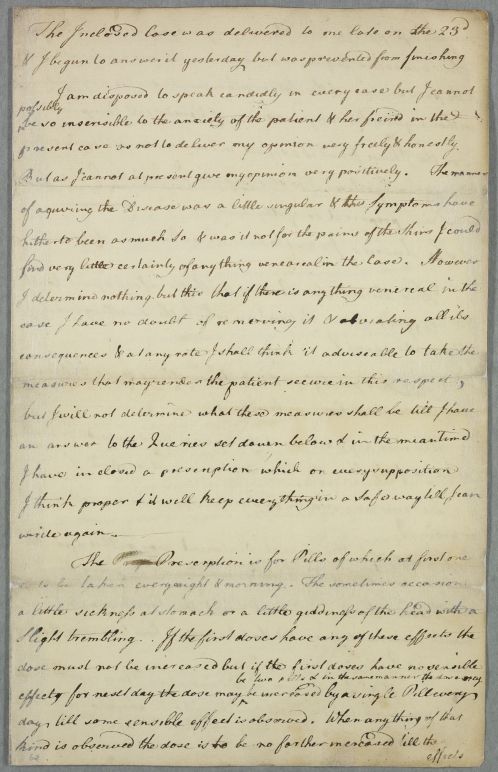 The Inclosed Case was delivered to me late on the 23d
& I begun to answer it yesterday but was prevented from finishing
I am disposed to speak candidly in every case but I cannot
possibly
be so insensible to the anxiety of the patient & her freind in the
present case as not to deliver my opinion very freely & honestly.
But as I cannot at present give my opinion very positively. The manner
of aquiring the Disease was a little singular & the Symptoms have
hitherto been as much so & was it not for the pains of the Shins I could
find very little certainly of any thing venereal in the Case. However
I determine nothing but this that if there is any thing venereal in the
case I have no doubt of removing it & obviating all its
consequences & at any rate I shall think it adviseable to take the
measures that may render the patient secure in this respect,
but I will not determine what these measures shall be till I have
an answer to the Queries set down below & in the meantime
I have inclosed a prescription which on every supposition
I think proper & it will keep every thing in a safe way till I can
write again.
The Prescription is for Pills of which at first one
is to be taken every night & morning. The sometimes occasion
a little sickness at stomach or a little giddiness of the head with a
slight trembling.. If the first doses have any of these effects the
dose must not be increased but if the first doses have no sensible
be two pills & in the same manner the dose may
effect for next day the dose may be increased by a single Pill every
day till some sensible effect is observed. When any thing of that
kind is observed the dose is to be no farther increased 'till the
effects